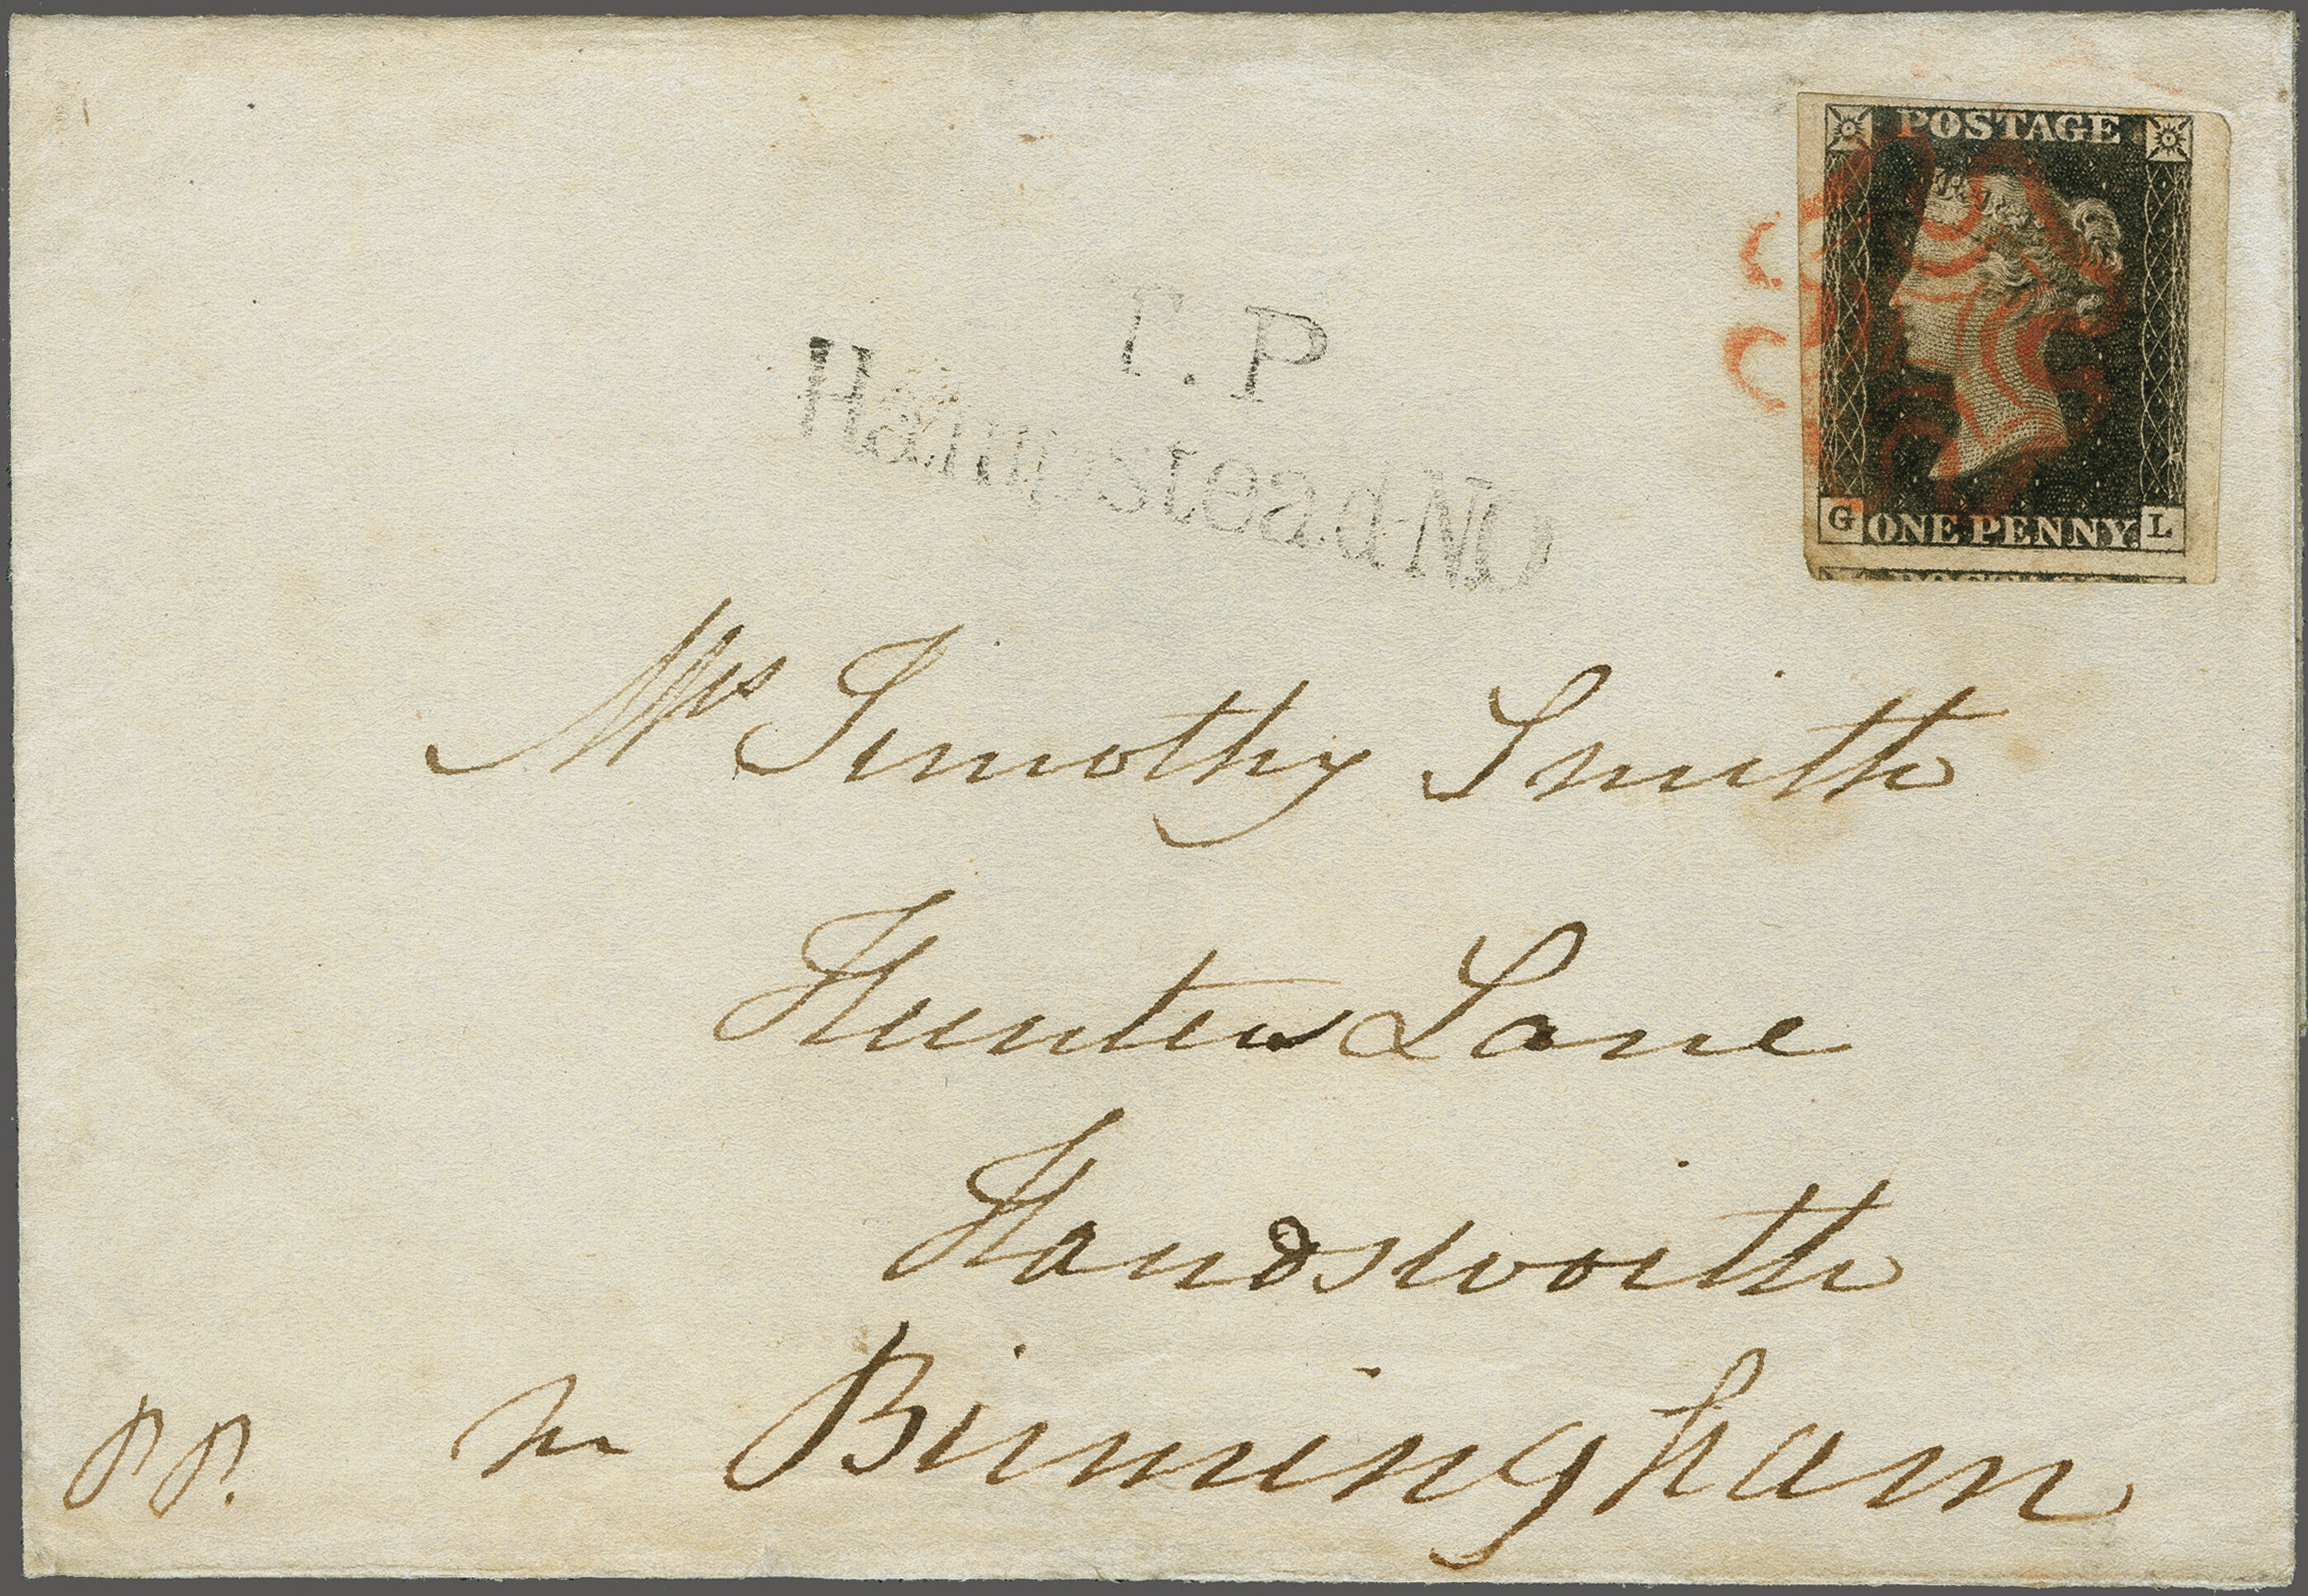 POSTAGE
T.P
Hampstead NO
G ONE PENNY. L
Mrs Timothy Smith
Hunters Lane
Handsworth
nr Birmingham
pp.